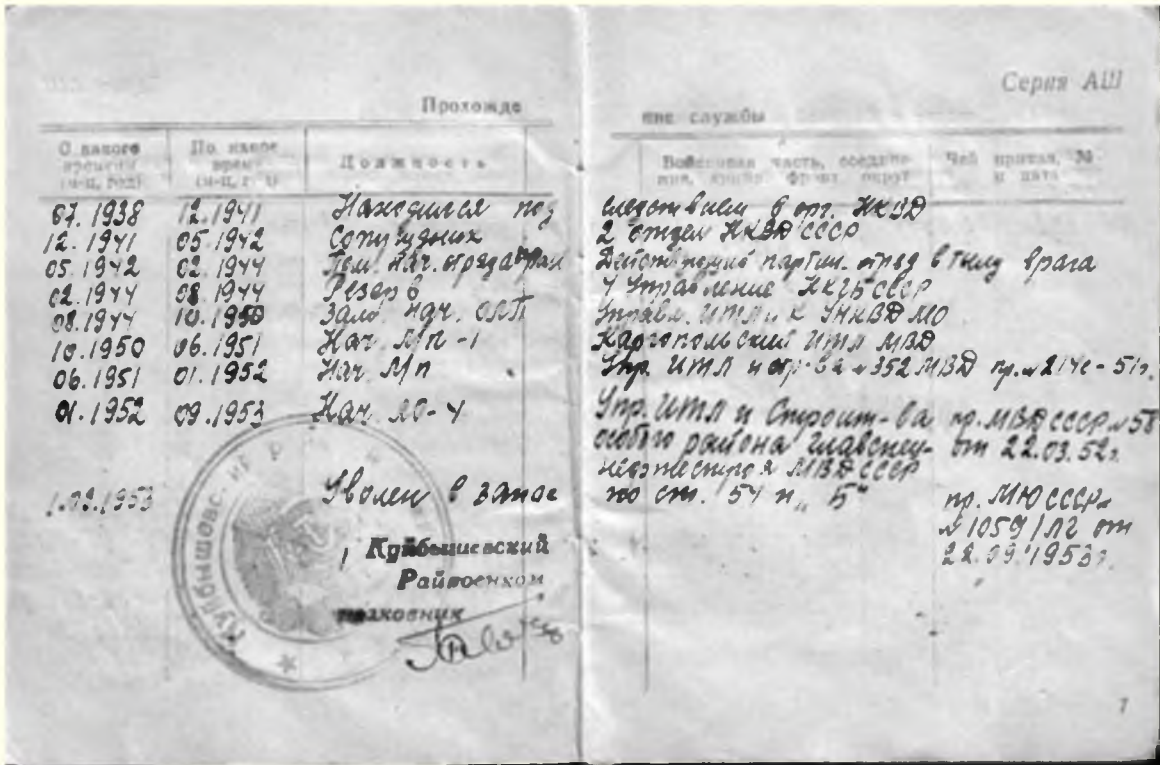 Серия АШ
Прохожде
ние службы
С какого времени (м-ц, год)
По какое время (м-ц, год)
Должность
Войсковая часть, соедине-
ния, армия, фронт, округ
Чей приказ, №
и дата
07.1938 12.1941 Находился под следствием в орг. НКВД
12.1941 05.1942 Сотрудник 2 отдел НКВД СССР
05.1942 02.1944 Пом. нач. отряда парт. в тылу врага
02.1944 08.1944 Резерв 4 Управление НКГБ СССР
08.1944 10.1950 Зам. нач. ОЛП Управл. ИТЛ и К УНКВД МО
10.1950 06.1951 Нач. Л/П-1 Каргопольский ИТЛ МВД
06.1951 01.1952 Нач. Л/п Упр. ИТЛ и стр-ва №352 МВД пр. № 214с-51г.
01.1952 09.1953 Нач. ЛО-4 Упр. ИТЛ и Строит-ва пр. МВД СССР №58
особого района Главспец- от 22.03.52г.
нефтестроя МВД СССР
1.09.1953 Уволен в запас по ст. 54 п. „Б“ пр. МЮ СССР
№1059/ЛС от
22.09.1953г.
Куйбышевский
Райвоенком
полковник
7